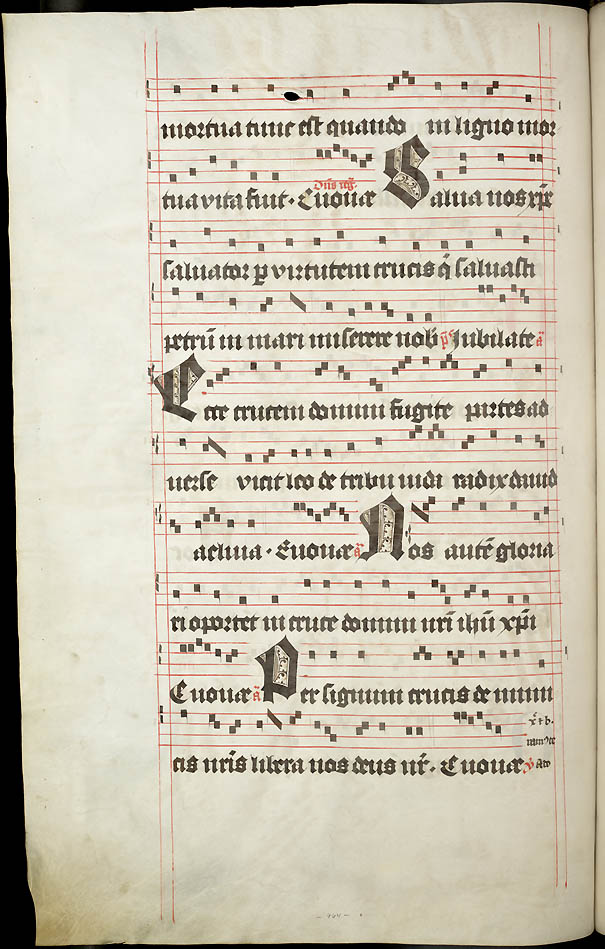 mortua tunc est quando in ligno mor
tua vita fuit · Euouae Salua nos xpe
saluator p virtutem crucis q saluasti
petrū in mari miserere nob Iubilate
Ecce crucem domini fugite partes ad
uerse vicit leo de tribu iuda radix dauid
aeluia · Euouae Nos autē gloria
ri oportet in cruce domini nrī ihū xpī
Euouae Per signum crucis de inimi
cis nrīs libera nos deus nr̄ · Euouae